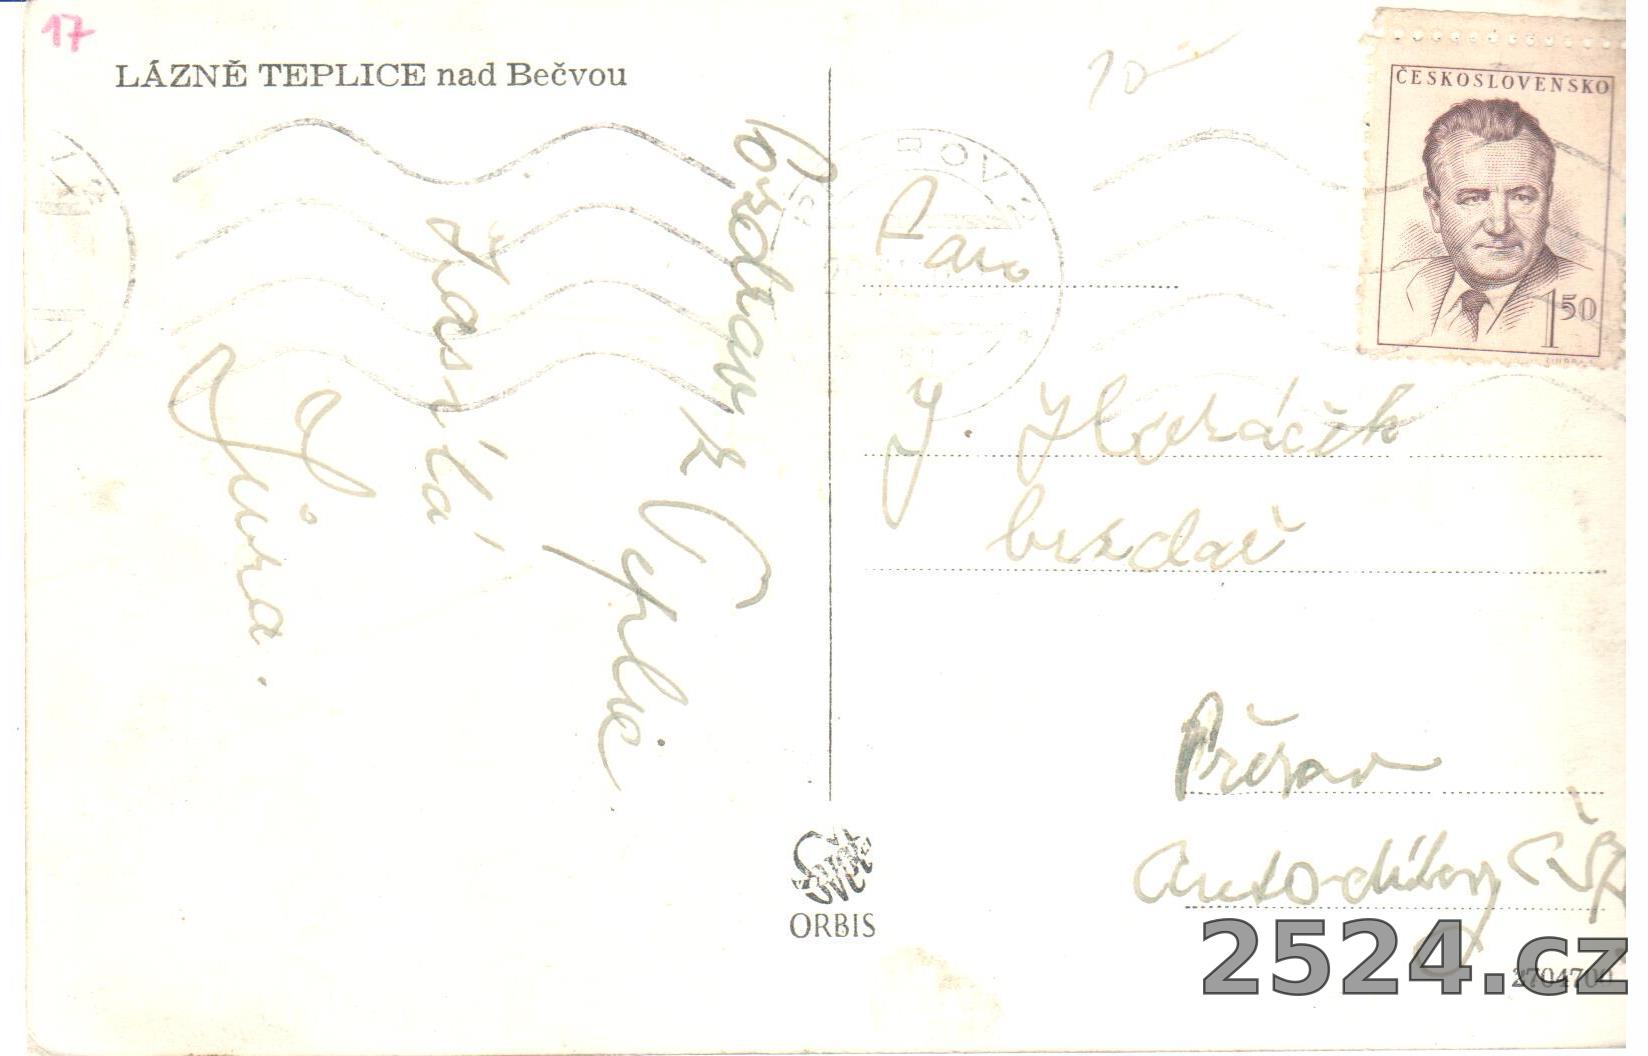 17
LÁZNĚ TEPLICE nad Bečvou
10
ČESKOSLOVENSKO
1 50
Pozdrav z
Teplic
zasílá
Jiira.
Pan
J. Horáček
brzdař
Přerov
Autodílny ČSA
Svět
ORBIS
2524.cz
2704700